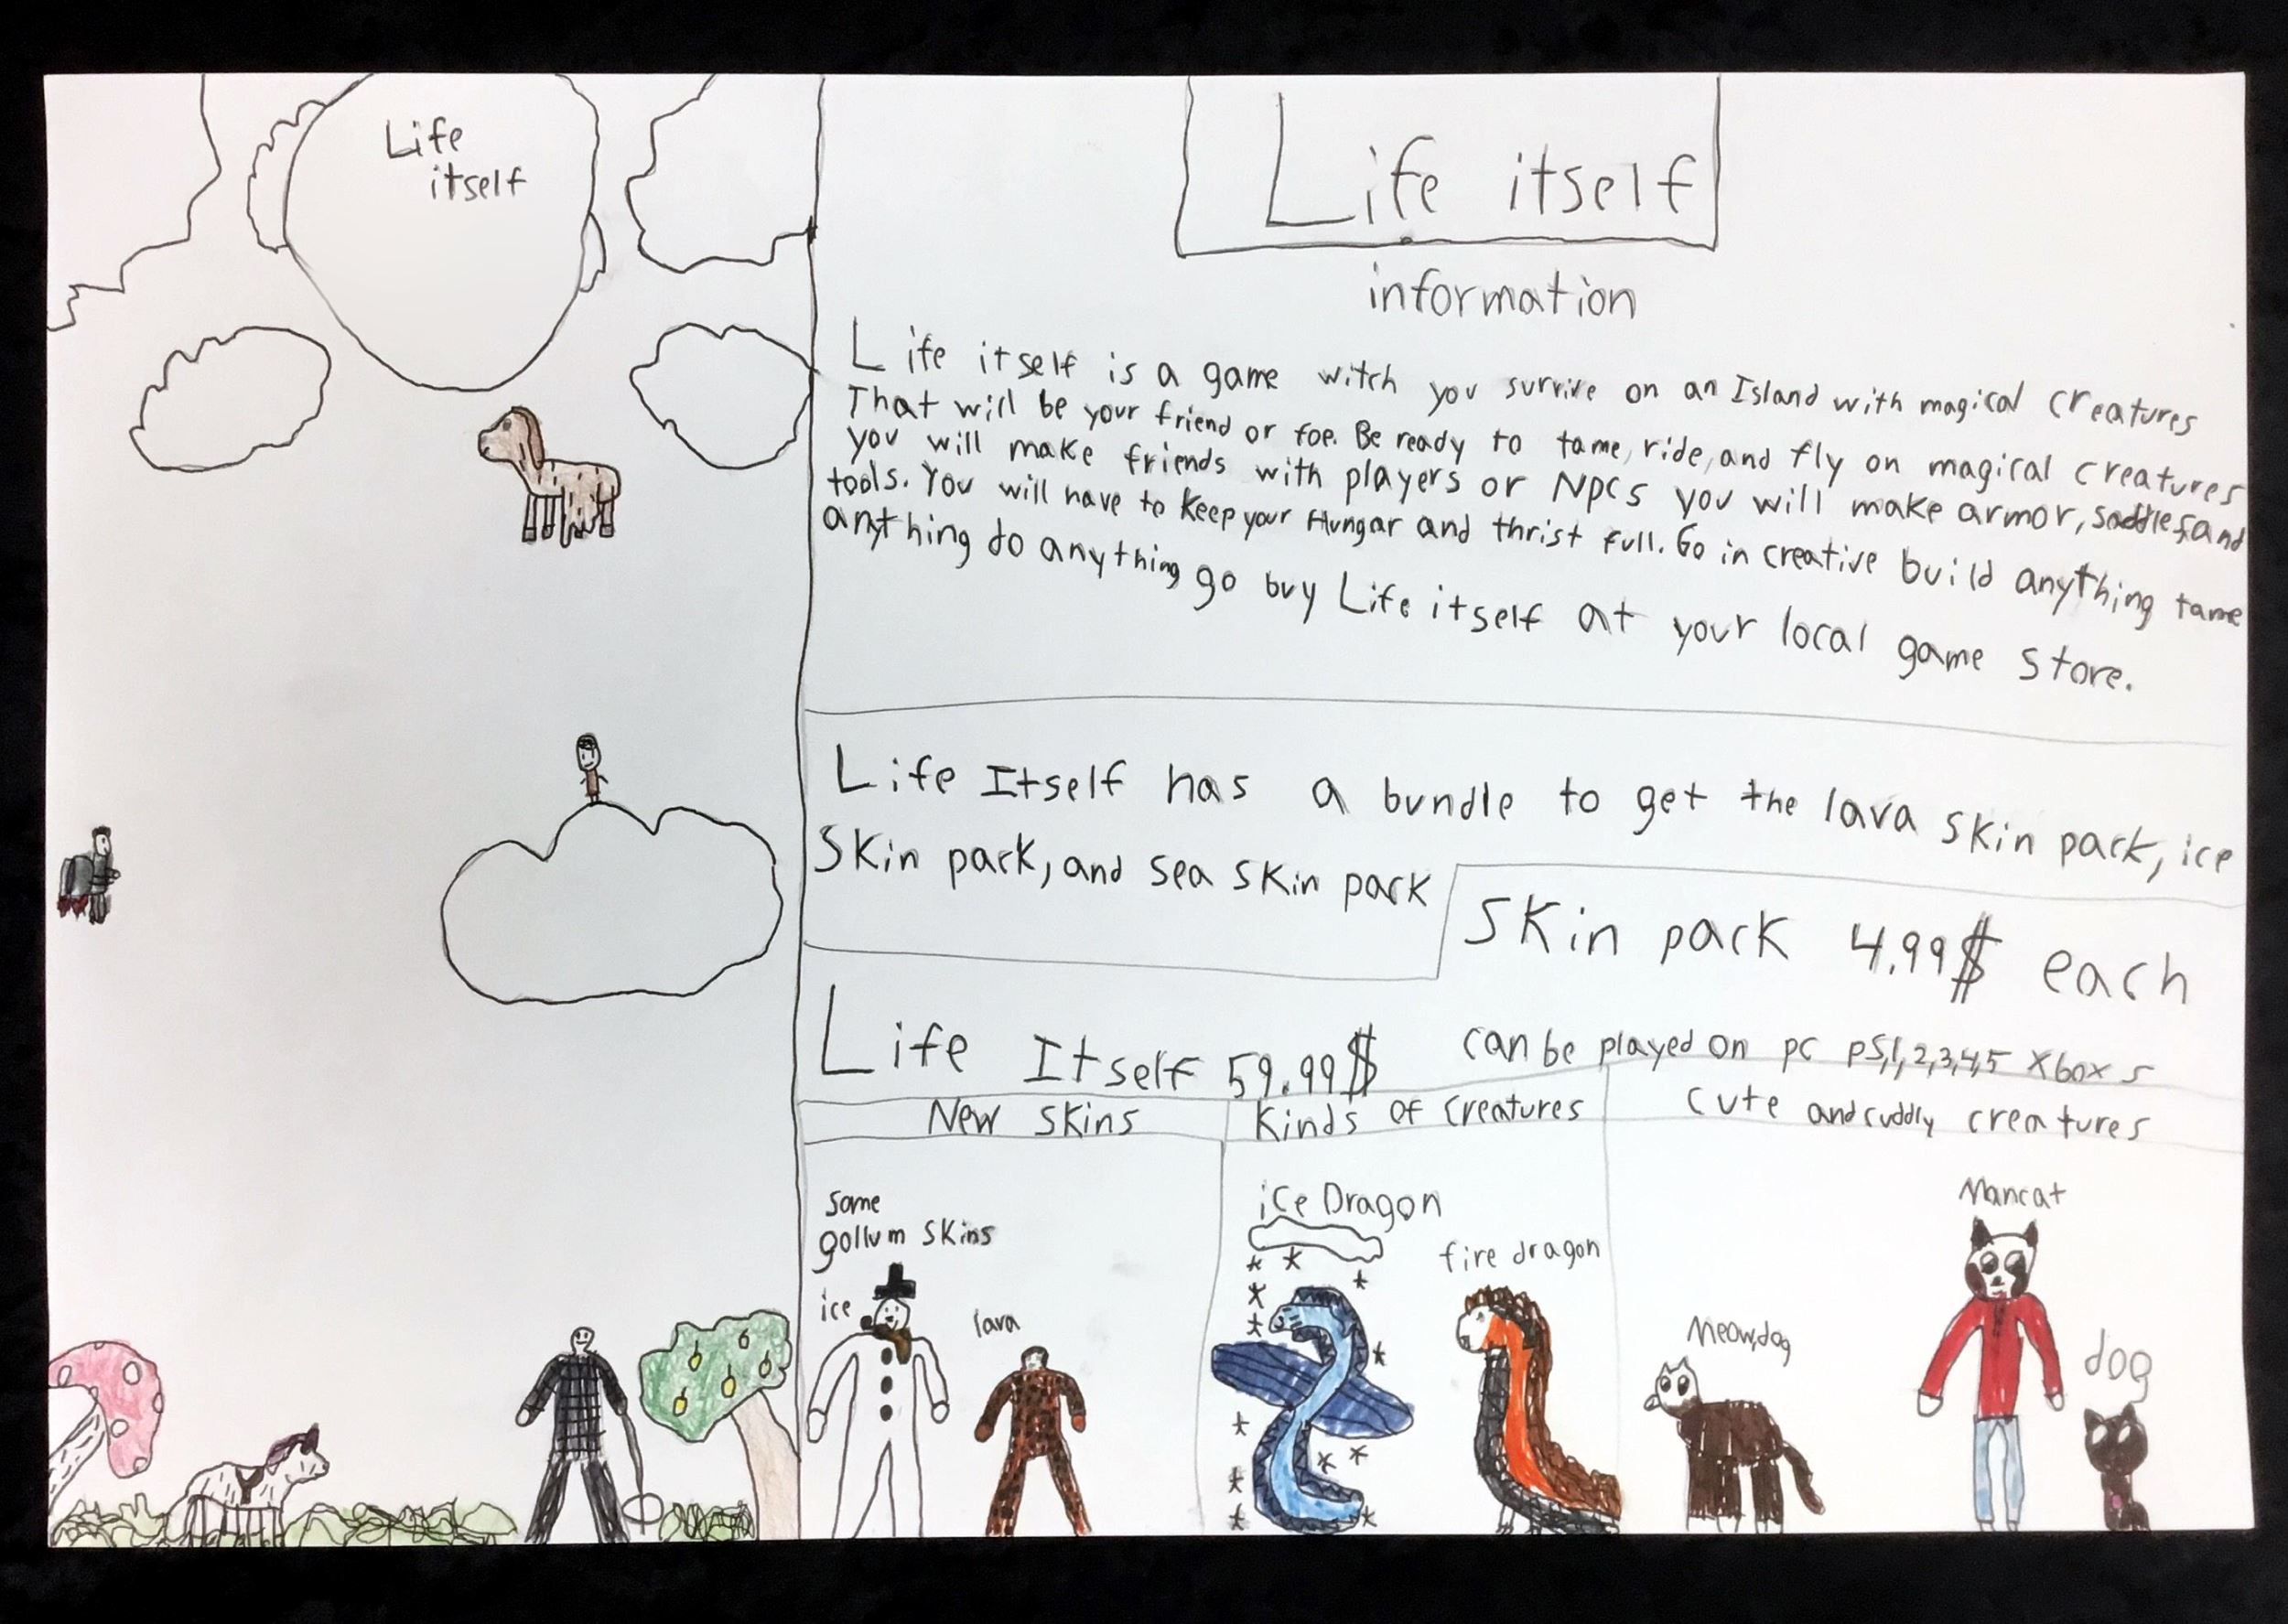 Life
itself
Life itself
information
Life itself is a game witch you survive on an Island with magical creatures
That will be your friend or foe. Be ready to tame, ride, and fly on magical creatures
you will make friends with players or NPCs you will make armor, saddles, and
tools. You will have to keep your Hungar and thrist full. Go in creative build anything tame
anything do anything go buy Life itself at your local game store.
Life Itself has a bundle to get the lava skin pack, ice
skin pack, and sea skin pack
Skin pack 4.99$ each
Life Itself 59.99$
can be played on pc ps,1,2,3,4,5 Xbox s
New skins
Kinds of creatures
cute and cuddly creatures
some
gollum skins
ice
lava
ice Dragon
fire dragon
Meowdog
Mancat
dog